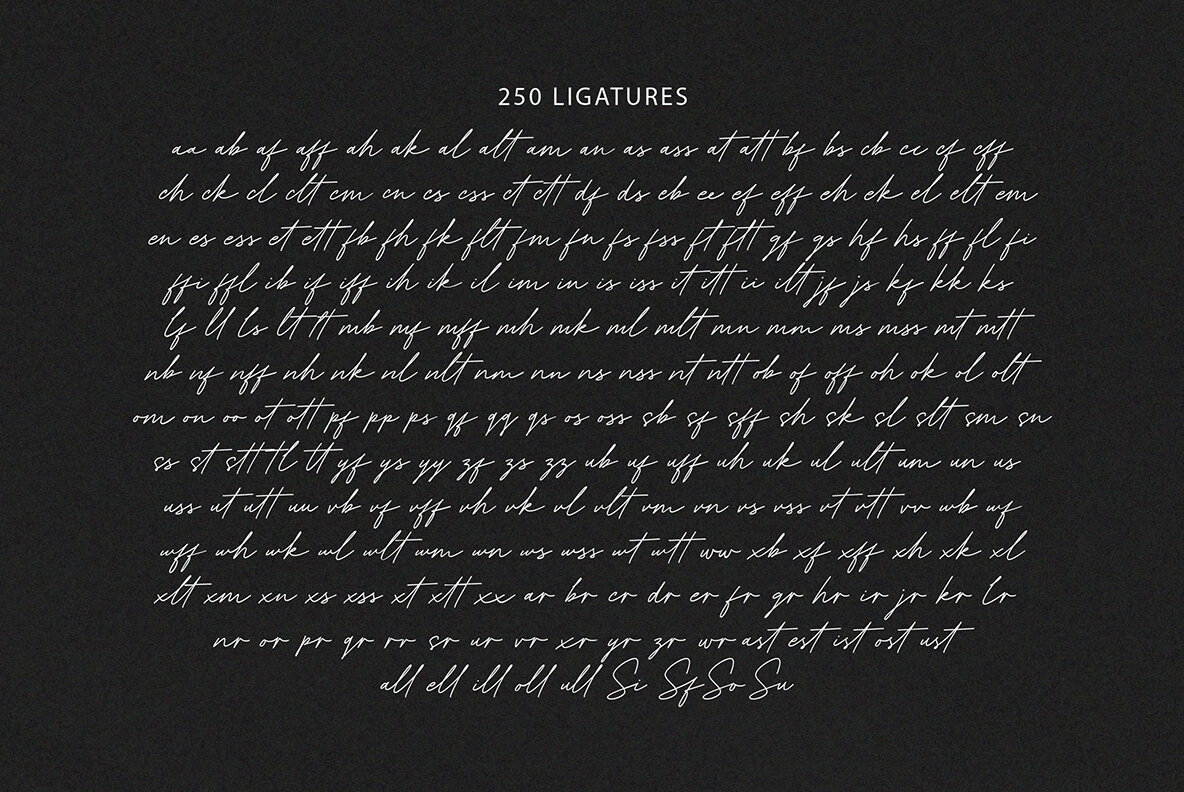 250 LIGATURES
aa ab af aff ah ak al alt am an as ass at att bf bs cb cc cf cff
ch ck cl clt cm cn cs css ct ctt df ds eb ee ef eff eh ek el elt em
en es ess et ett fb fh fk flt fm fn fs fss ft ftt gf gs hf hs ff fl fi
ffi ffl ib if iff ih ik il im in is iss it itt ii ilt jf js kf kk ks
lf ll ls lt ft mb mf mff mh mk ml mlt mn mm ms mss mt mtt
nb nf nff nh nk nl nlt nm nn ns nss nt ntt ob of off oh ok ol olt
om on oo ot ott pf pp ps qf qq qs os oss sb sf sff sh sk sl slt sm sn
ss st stt tl tt yf ys yy zf zs zz ub uf uff uh uk ul ult um un us
uss ut utt uu vb vf vff vh vk vl vlt vm vn vs vss vt vtt vv wb wf
wff wh wk wl wlt wm wn ws wss wt wtt ww xb xf xff xh xk xl
xlt xm xn xs xss xt xtt xx ar br cr dr er fr gr hr ir jr kr lr
nr or pr qr rr sr ur vr xr yr zr wr ast est ist ost ust
all ell ill oll ull Si Sf So Su